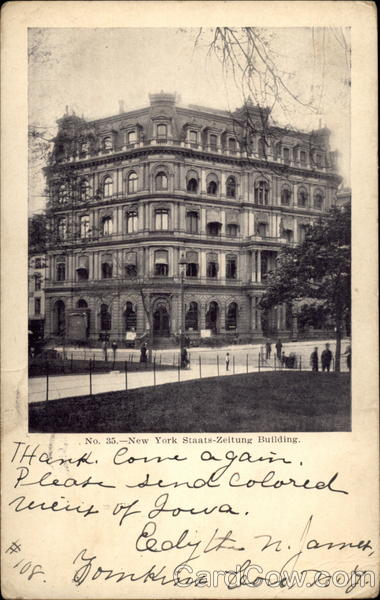 No. 35.—New York Staats-Zeitung Building.
THank. Come again.
Please send colored
views of Iowa.
Edythe N. James,
#108. Tomkins Cove N.Y.
CardCow.com